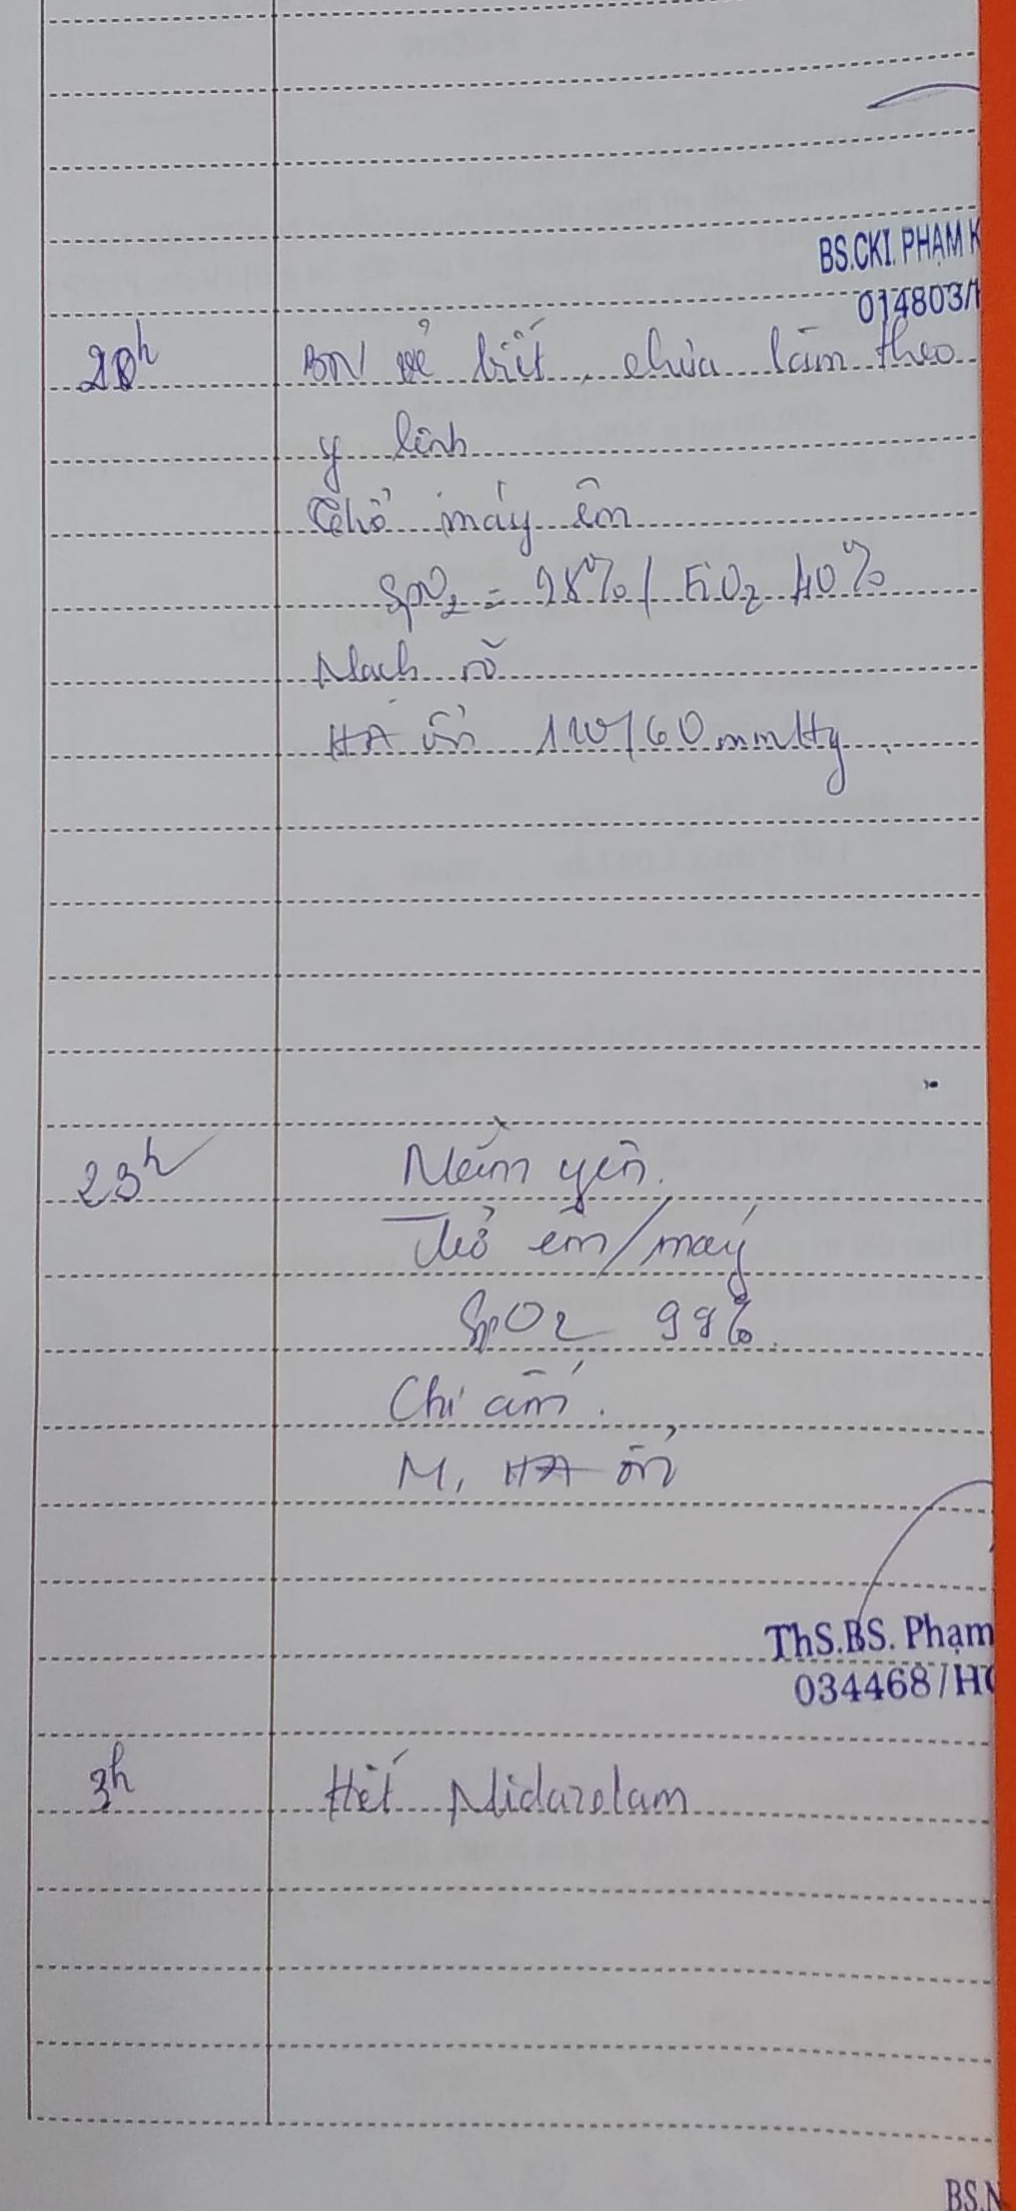 BS.CKI. PHẠM K
014803/H
20h BN vẻ biết, chưa làm theo
y lệnh
Thở máy êm
SpO2 = 98% / FiO2 40%
Mạch rõ
HA ổn 120/60 mmHg.
23h Nằm yên.
Thở êm/máy
SpO2 98%.
Chi ấm.
M, HA ổn
ThS.BS. Phạm
034468/HC
3h Hết Midazolam
BS.N